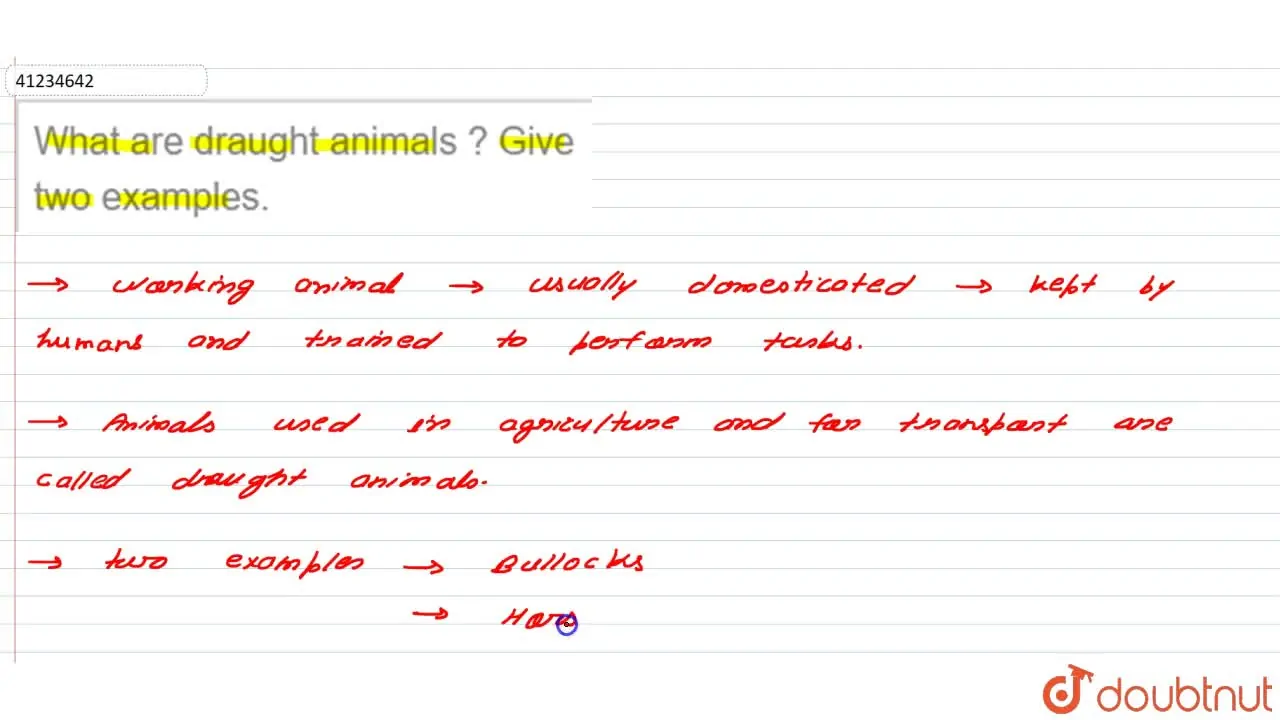 41234642
What are draught animals ? Give
two examples.
→ working animal → usually domesticated → kept by
humans and trained to perform tasks.
→ Animals used in agriculture and for transport are
called draught animals.
→ two examples → Bullocks
→ Hors
doubtnut